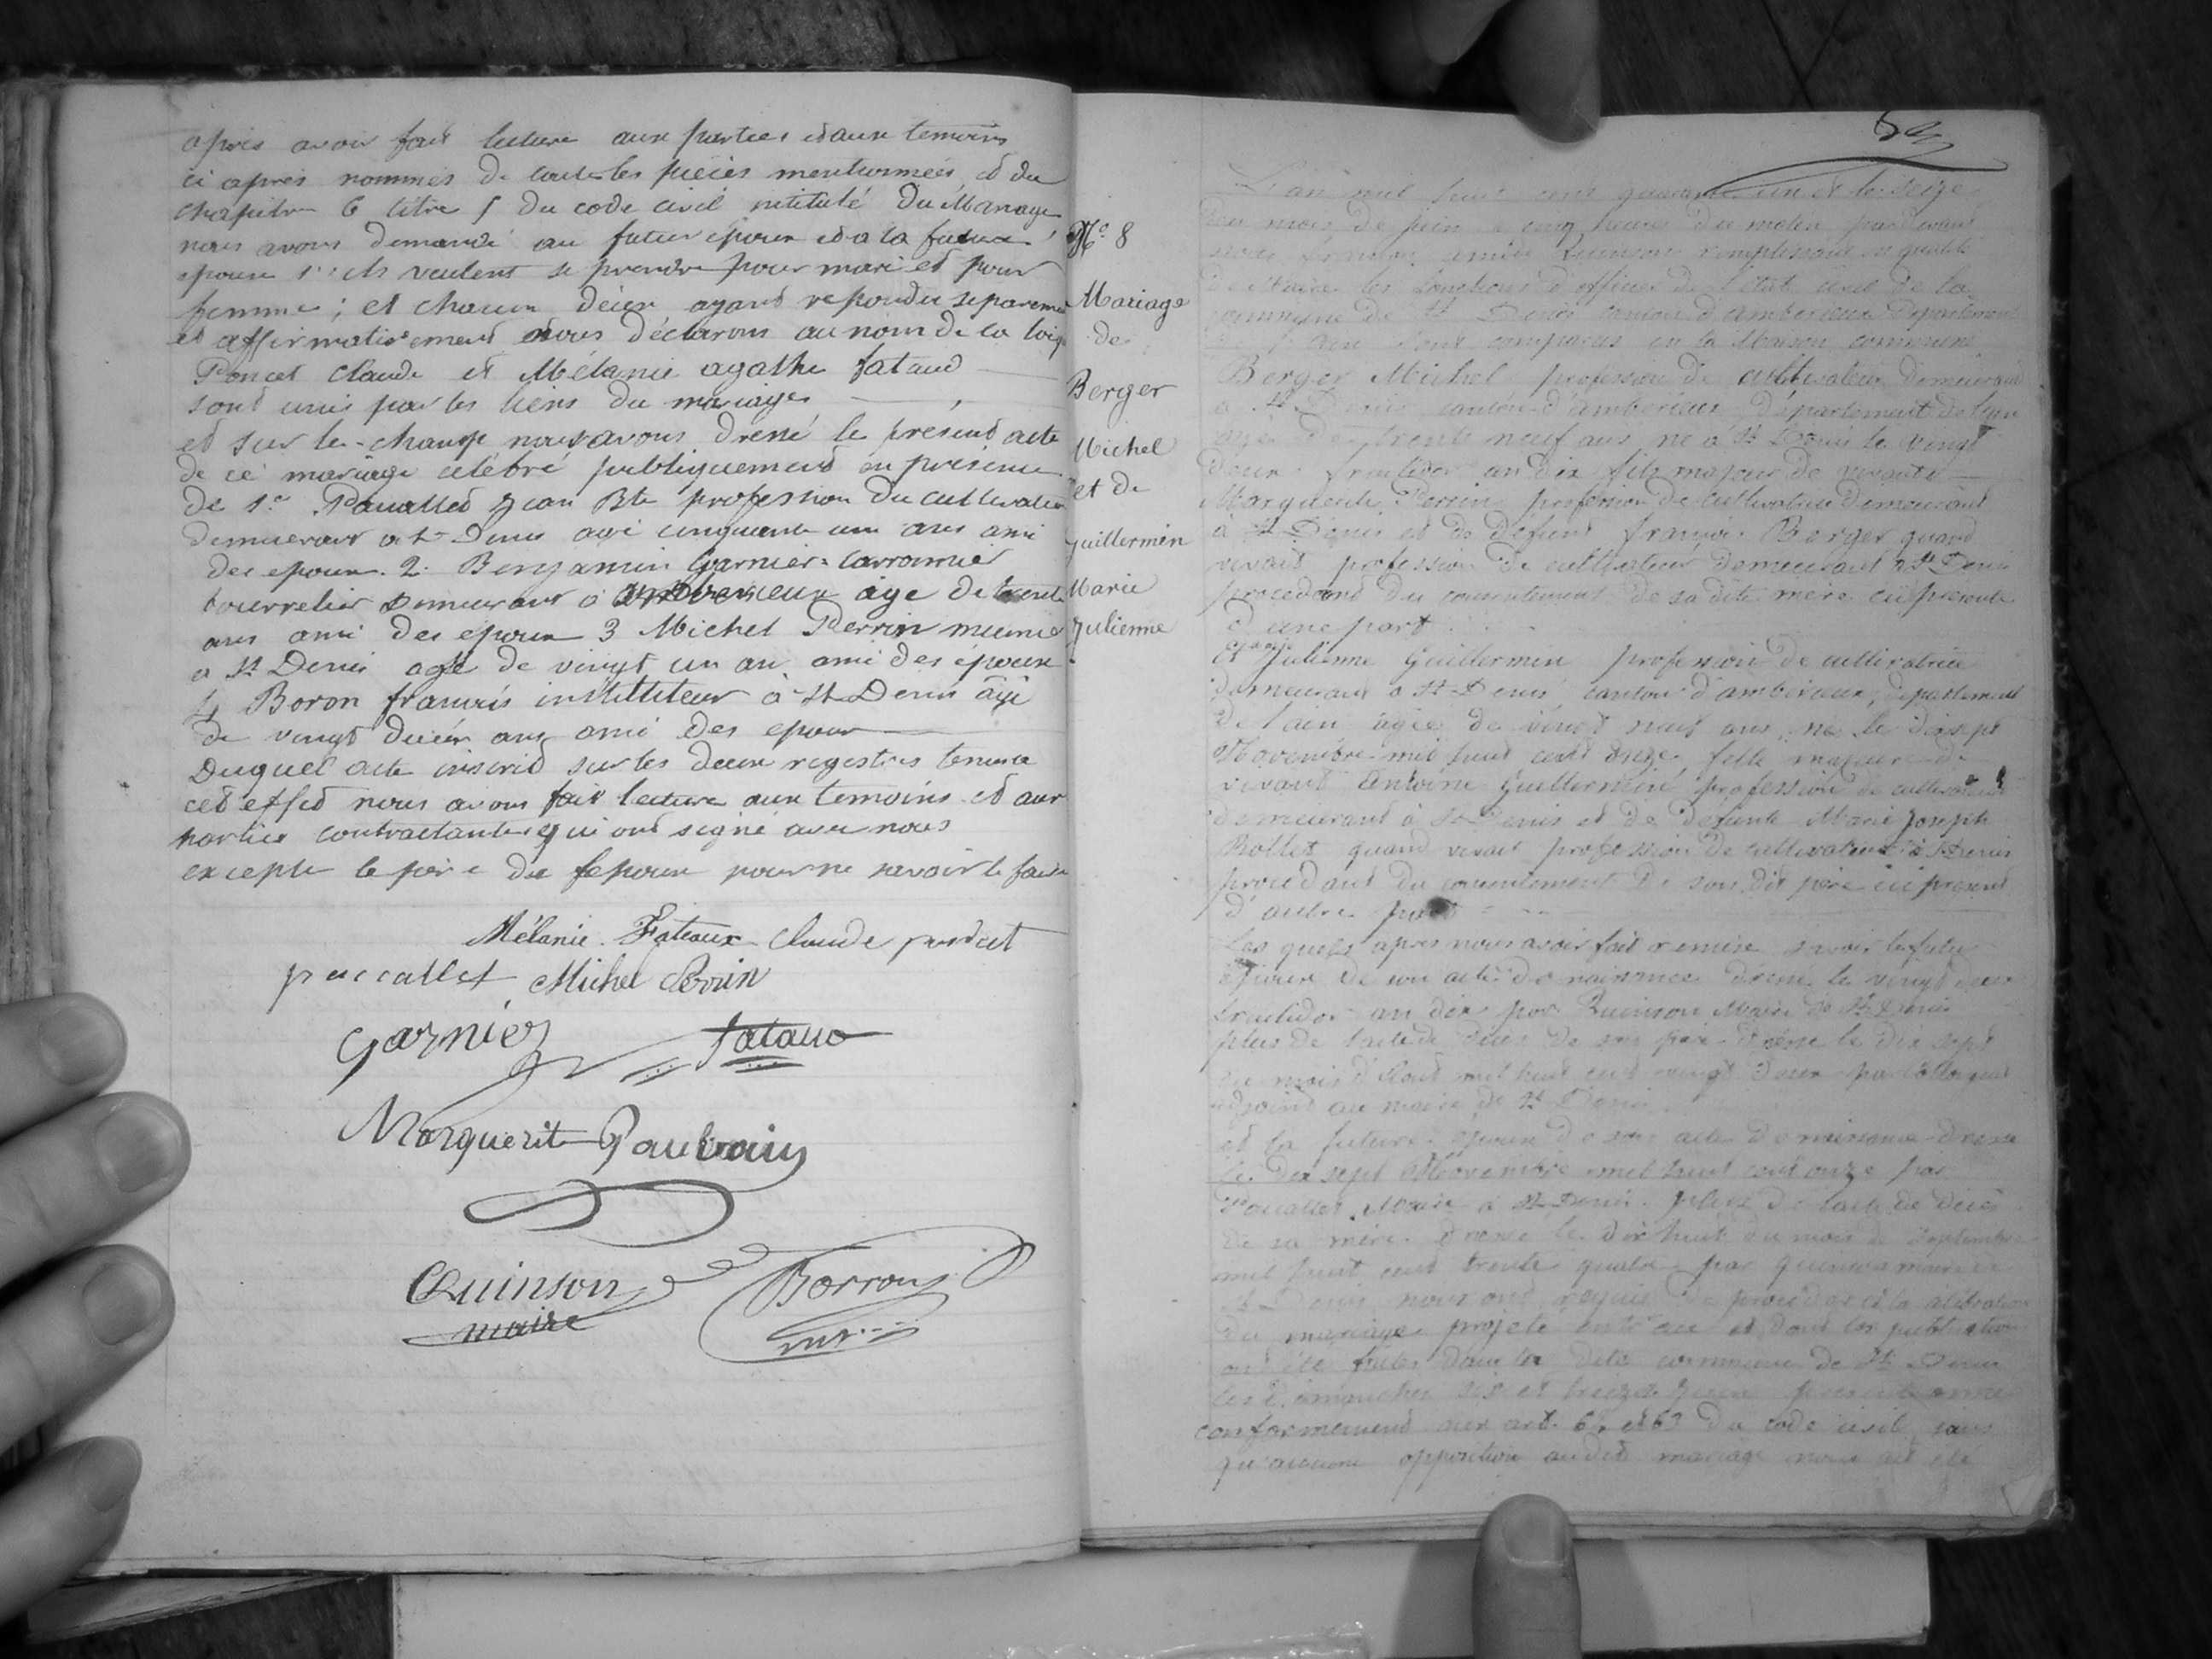 après avoir fait lecture aux parties et aux temoins
ci après nommés de toutes les pièces mentionnées, et du
chapitre 6 titre 5 du code civil intitulé Du Mariage
nous avons demandé au futur epoux et a la future
epouse s'ils veulent se prendre pour mari et pour
femme ; et chacun d'eux ayant repondu separement
et affirmativement nous déclarons au nom de la loi que
Poncet Claude et Mélanie agathe fataud
sont unis par les liens du mariage
et sur le-champ nous avons dressé le présent acte
de ce mariage célébré publiquement en présence
de 1º Pouallet Jean Bte profession de cultivateur
demeurant a St Denis agé cinquante un ans ami
des epoux. 2. Benjamin Garnier-Carronnier
bourrelier demeurant à amberieux âge de trente
ans ami des epoux 3 Michel Perrin meunier
a St Denis agé de vingt un an ami des époux
4 Boron francois instititeur à St Denis âgé
de vingt deux ans ami des epoux
Duquel acte inscrit sur les deux registres tenus a
cet effet nous avons fait lecture aux temoins et aux
parties contractantes qui ont signé avec nous
excepte le père de l'epoux pour ne savoir le faire
Mélanie Fateaux Claude
Michel Perrin
Garnier fataud
Marguerit
Quinson Borron
maire
Nº 8
Mariage
de
Berger
Michel
et de
guillermin
Marie
Julienne
L'an mil huit cent quarante un et le seize
du mois de juin a cinq heures du matin pardevant
nous Quinson remplissant en qualité
de Maire les fonctions d'officier de l'état civil de la
commune de St Denis canton d'amberieux département
de l'ain sont comparus en la Maison commune
Berger Michel profession de cultivateur demeurant
a St Denis canton d'amberieux département de l'ain
agé de trente neuf ans né à St Denis le vingt
deux fructidor an dix fils majeur de vivante
Marguerite Perrin profession de cultivatrice demeurant
à St Denis et de defunt françois Berger quand
vivait profession de cultivateur demeurant a St Denis
procedant du consentement de sa dite mère ici presente
d'une part
Et Julienne Guillermin profession de cultivatrice
demeurant a St Denis canton d'amberieux, departement
de l'ain agée de vingt neuf ans née le dix sept
Novembre mil huit cent onze fille majeure de
vivant Antoine Guillermin profession de cultivateur
demeurant à St Denis et de defunte Marie Joseph
Rollet quand vivait profession de cultivatrice à St Denis
procedant du consentement de son dit père ici present
d'autre part
Les quels apres nous avoir fait remise savoir le futur
epoux de son acte de naissance dressé le vingt deux
fructidor an dix par Quinson Maire de St Denis
plus de l'acte de décès de son père dressé le dix sept
du mois d'Aout mil huit cent vingt deux par
adjoint au maire de St Denis
et la future epouse de son acte de naissance dressé
le dix sept Novembre mil huit cent onze par
Pouallet Maire a St Denis. plus de l'acte de décès
de sa mère dressé le dix huit du mois de Septembre
mil huit cent trente quatre par Quinson maire de
St Denis nous ont requis de proceder a la celebration
du mariage projeté entre eux et dont les publications
ont été faites dans la dite commune de St Denis
les dimanches six et treize juin
conformement aux art. 63 du code civil sans
qu'aucune opposition audit mariage nous ait été